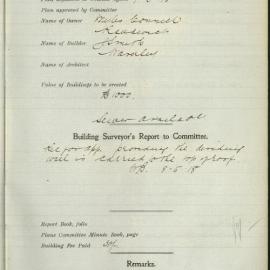 Plan approved by Committee
Name of Owner Miles Connell
Name of Builder J Smith
Name of Architect
Value of Buildings to be erected
£1000
Sewer available
Building Surveyor's Report to Committee.
providing the dividing
wall is carried to the top of roof
8-5-18
Report Book, folio
Plans Committee Minute Book, page
Building Fee Paid 30/-
Remarks.